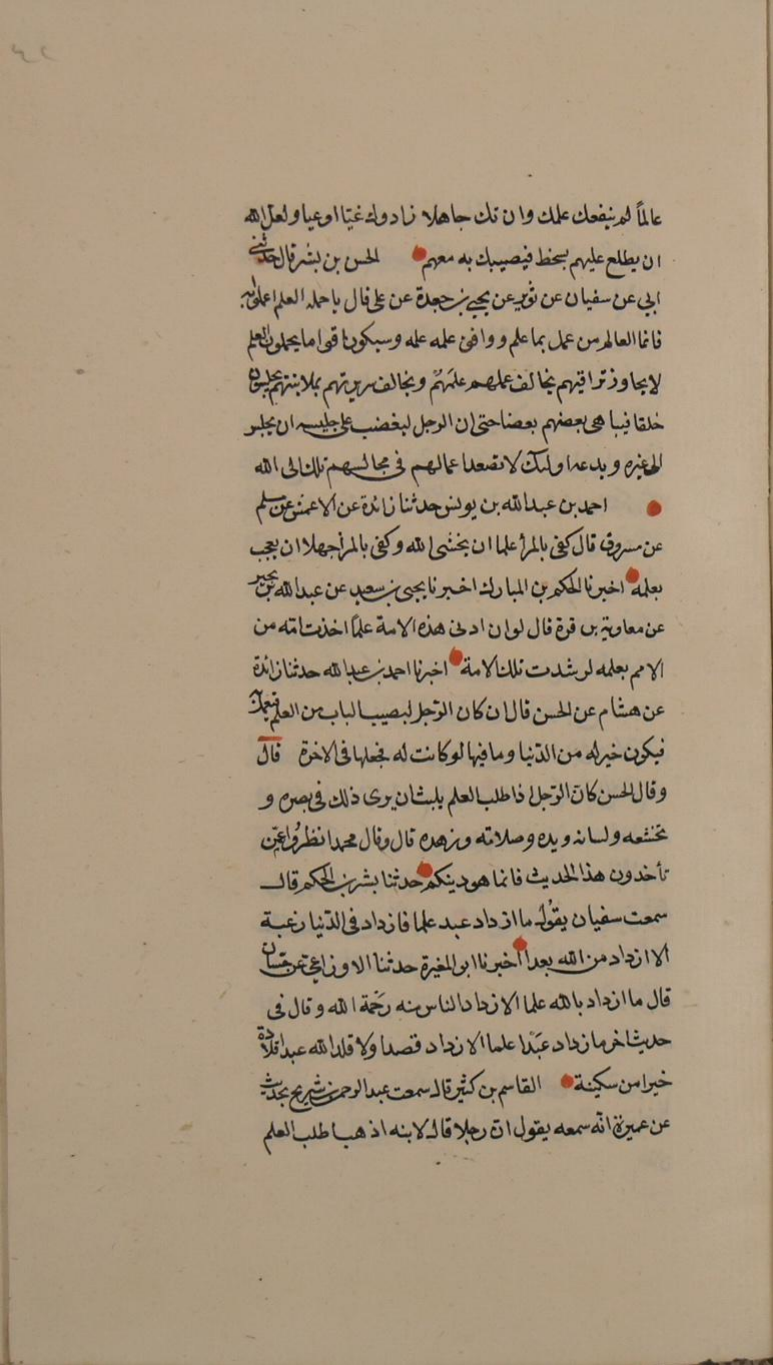 عالماً لم ينفعك علمك وان تك جاهلا زادوك غيّا او عيا ولعل الله
ان يطلع عليهم بسخط فيصيبك به معهم الحسن بن بشر قال حدثني
ابي عن سفيان عن ثوير عن يحيى بن جعدة عن على قال ياحملة العلم اعملوا به
فانما العالم من عمل بما علم ووافق علمه عمله وسيكون اقواما يحملون العلم
لايجاوز تراقيهم يخالف عملهم علمهم ويخالف سريرتهم علانيتهم يجلسون
حلقا فيباهى بعضهم بعضا حتى ان الرجل ليغضب على جليسه ان يجلس
الى غيره ويدعه اولئك لاتصعد اعمالهم فى مجالسهم تلك الى الله
احمد بن عبدالله بن يونس حدثنا زائدة عن الاعمش عن مسلم
عن مسروق قال كفى بالمرأ علما ان يخشى الله وكفى بالمرأ جهلا ان يعجب
بعلمه اخبرنا الحكم بن المبارك اخبرنا يحيى بن سعيد عن عبدالله بن بحير
عن معاوية بن قرة قال لوان ادنى هذه الامة علماً اخذت امه من
الامم بعلمه لرشدت تلك الامة اخبرنا احمد بن عبدالله حدثنا زائدة
عن هشام عن الحسن قال ان كان الرّجل ليصيب الباب من العلم فيعمل به
فيكون خير له من الدّنيا ومافيها لوكانت له فجعلها فى الاخرة قال
وقال الحسن كان الرّجل اذا طلب العلم يلبث ان يرى ذلك فى بصره و
تخشعه ولسانه ويده وصلاته وزهده قال وقال محمد انظروا عمّن
تأخذون هذا الحديث فانما هو دينكم حدثنا بشر بن الحكم قال
سمعت سفيان يقول ما ازداد عبد علما فازداد فى الدّنيا رغبة
الا ازداد من الله بعدا اخبرنا ابو المغيرة حدثنا الاوزاعي عن حسان
قال ما ازداد بالله علما الا ازداد الناس منه رحمة الله وقال فى
حديث اخر ما زداد عبدا علما الا زداد قصدا ولا قلد الله عبدا قلادة
خيرا من سكينة القاسم بن كثير قال سمعت عبد الرحمن بن شريح يحدث
عن عميرة انّه سمعه يقول ان رجلا قال لابنه اذهب اطلب العلم